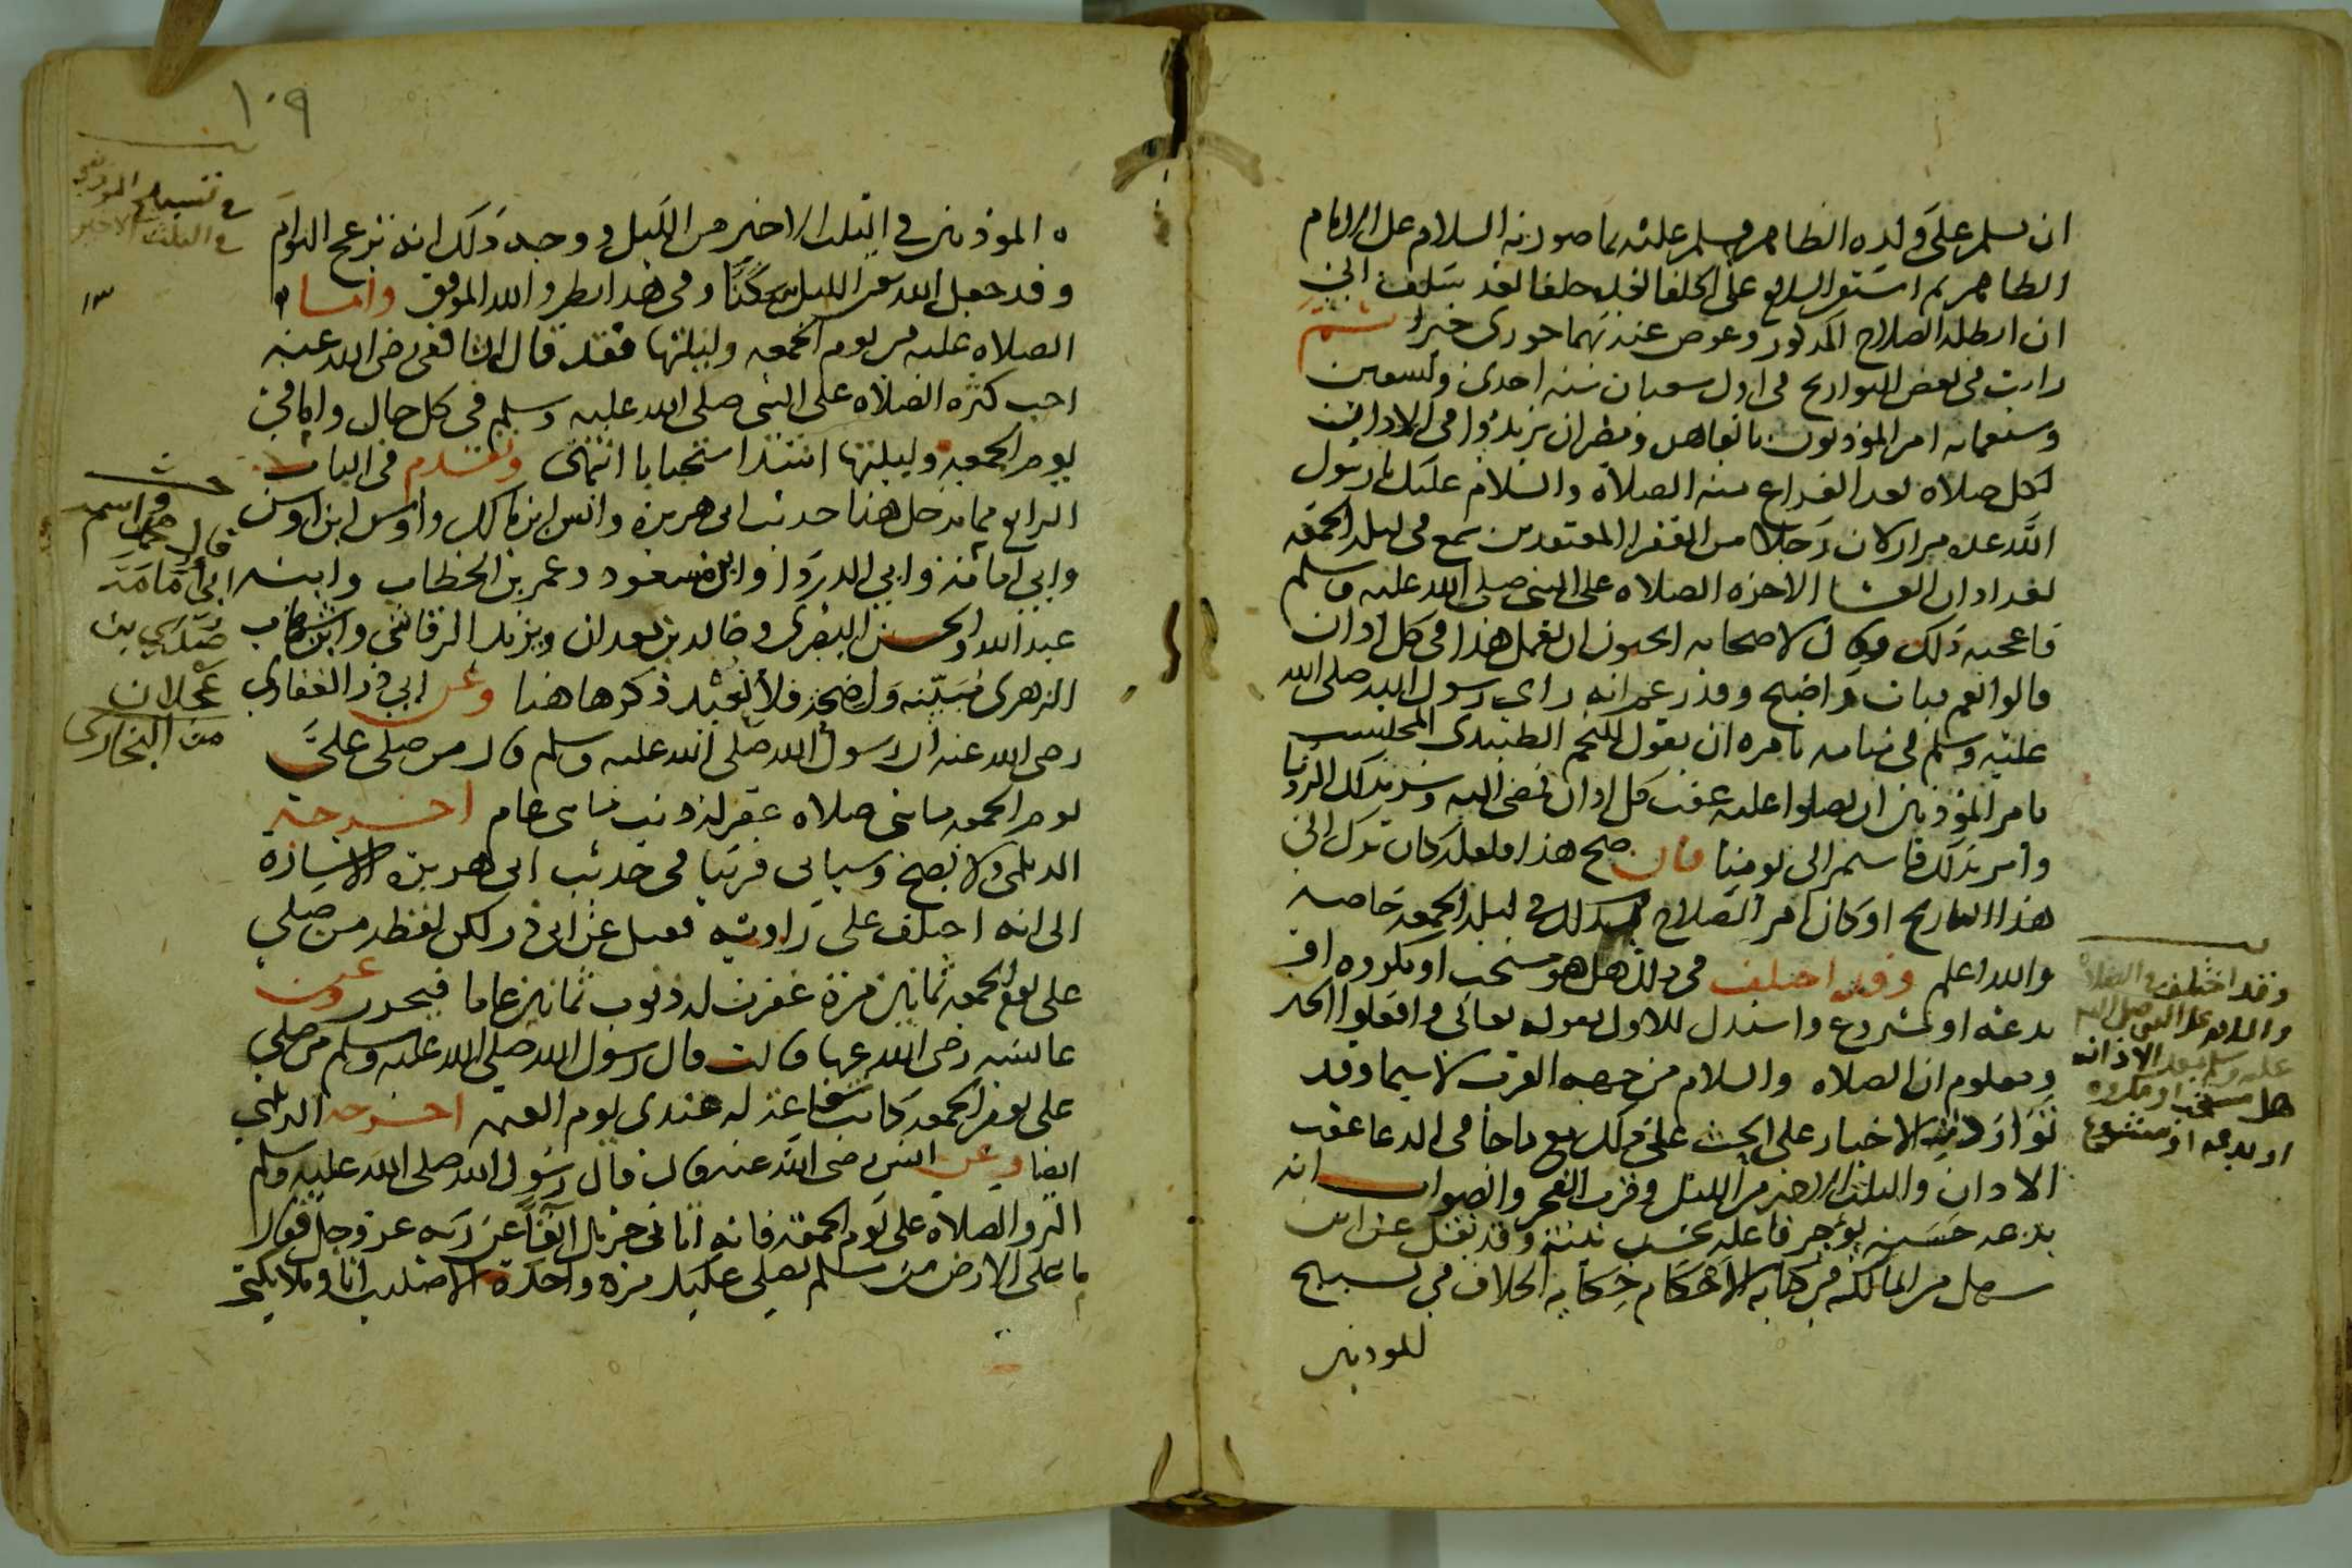 ان يسلم على ولده الظاهر فسلم عليه بما صورته السلام على الامام
الظاهر ثم استمر السلام على الخلفا بعده خلفا بعد سلف الى
ان ابطله الصلاح المذكور وعوض عنه بهما جوزي خيرا ثم
رايت في بعض التواريخ في اول شعبان سنة احدى وتسعين
وسبعمايه امر الموذنون بالقاهره ومصر ان يزيدوا في الاذان
لكل صلاه بعد الفراغ منه الصلاة والسلام عليك يا رسول
الله عدة مرار لان رجلا من الفقرا المعتقدين سمع في ليلة الجمعة
بعد اذان العشا الاخره الصلاه على النبي صلى الله عليه وسلم
فاعجبه ذلك وقال لاصحابه اتحبون ان يعمل هذا في كل اذان
قالوا نعم فبات واضبح وقد زعم انه راي رسول الله صلى الله
عليه وسلم في منامه يامره ان يقول للنجم الطنبدى المحتسب
يامر الموذنين ان يصلوا عليه عقب كل اذان فمضى اليه وسر بتلك الرويا
وامر بذلك فاستمر الى يومنا فان صح هذا فلعله كان ترك الى
هذا التاريخ او كان امر الصلاح به كذلك في ليلة الجمعه خاصه
والله اعلم وقد اختلف في ذلك هل هو مستحب او مكروه او
بدعه او مشروع واستدل للاول بقوله تعالى وافعلوا الخير
ومعلوم ان الصلاه والسلام من جهة القرب لا سيما وقد
تواردت الاخبار على الحث على ذلك مع ما جا في الدعا عقب
الاذان والثلث الاخير من الليل وقرب الفجر والصواب انه
بدعه حسنه يوجر فاعله بحسب نيته وقد نقل عن ابن
سهل من المالكيه في كتابه الاحكام حكاية الخلاف في تسبيح
للموذنين
وقد اختلف في الصلاة
والسلام على النبي صلى الله
عليه وسلم بعد الاذان
هل مستحب او مكروه
او بدعه او مشروع
١٠٩
الموذنين في الثلث الاخير من الليل ووجه ذلك انه يزعج النوام
وقد جعل الله الليل سكنا وفي هذا نظر والله الموفق واما
الصلاه عليه في يوم الجمعه وليلتها فقد قال الشافعي رضي الله عنه
احب كثرة الصلاه على النبي صلى الله عليه وسلم في كل حال وانا في
يوم الجمعه وليلتها اشد استحبابا انتهى وتقدم في الباب
الرابع مما يدخل هنا حديث ابي هريره وانس ابن مالك واوس ابن اوس
وابي امامه وابي الدردا وابن مسعود وعمر بن الخطاب وابنه
عبد الله والحسن البصري وخالد بن معدان ويزيد الرقاشي وابن شهاب
الزهري مبينه واضحه فلا نعيد ذكرها هنا وعن ابي ذر الغفاري
رضي الله عنه ان رسول الله صلى الله عليه وسلم قال من صلى علي
يوم الجمعه مايتي صلاه غفر له ذنب مايتي عام اخرجه
الديلمي ولا يصح وسياتي قريبا في حديث ابي هريره الاشاره
الى انه اختلف على راويه فقيل عن ابي ذر لكن لفظه من صلى
علي يوم الجمعه ثمانين مرة غفرت له ذنوب ثمانين عاما فيحرر وعن
عايشه رضي الله عنها قالت قال رسول الله صلى الله عليه وسلم من صلى
علي يوم الجمعه كانت شفاعة له عندي يوم القيمه اخرجه الديلمي
ايضا وعن انس رضي الله عنه قال قال رسول الله صلى الله عليه وسلم
اكثروا الصلاه علي يوم الجمعه فانه اتاني جبريل انفا عن ربه عز وجل فقال
ما على الارض من مسلم يصلي عليك مرة واحدة الا صليت انا وملايكتي
في تسبيح الموذنين
في الثلث الاخير
قال واسم
ابي امامة
صدي بن
عجلان
من البخاري